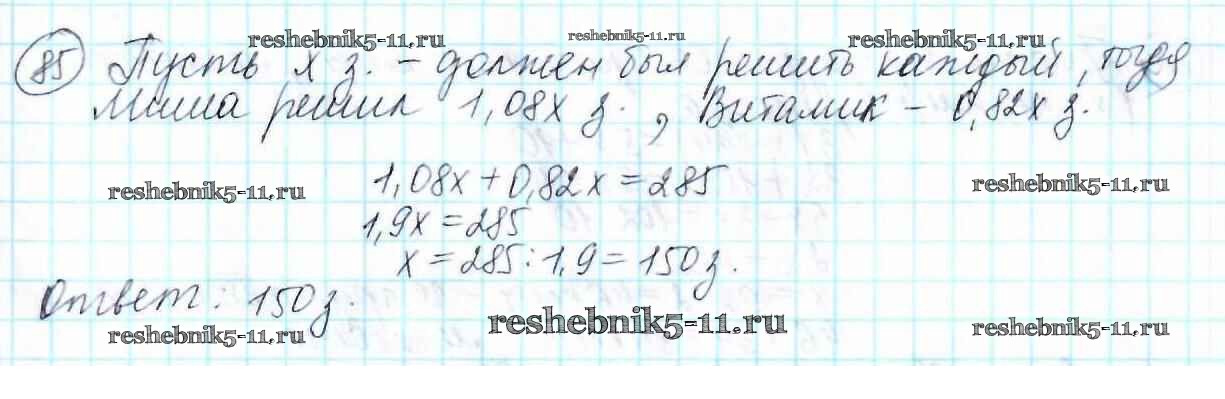 reshebnik5-11.ru reshebnik5-11.ru reshebnik5-11.ru
85 Пусть x з. – должен был решить каждый, тогда
Миша решил 1,08x з., Виталик – 0,82x з.
1,08x + 0,82x = 285
reshebnik5-11.ru reshebnik5-11.ru
1,9x = 285
x = 285 : 1,9 = 150 з.
Ответ: 150 з.
reshebnik5-11.ru reshebnik5-11.ru reshebnik5-11.ru